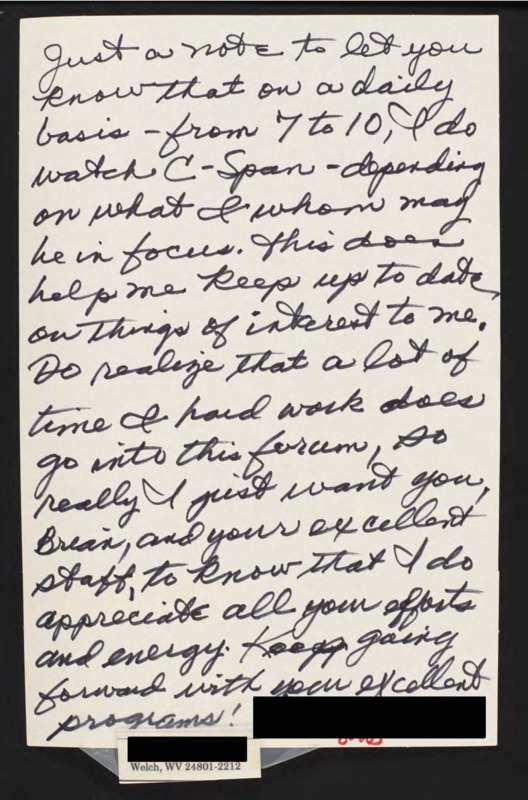 Just a note to let you
know that on a daily
basis - from 7 to 10, I do
watch C-Span - depending
on what & whom may
be in focus. This does
help me keep up to date
on things of interest to me.
Do realize that a lot of
time & hard work does
go into this forum, so
really I just want you,
Brian, and your excellent
staff, to know that I do
appreciate all your efforts
and energy. Keep going
forward with your excellent
programs!
Welch, WV 24801-2212